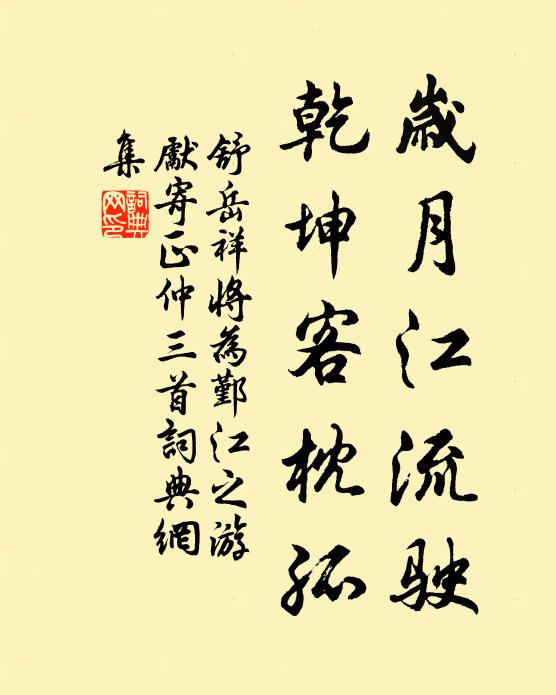 歲月江流駛
乾坤客枕孤
舒岳祥將為鄞江之游
獻寄正仲三首詞典網
集
詞典
网印